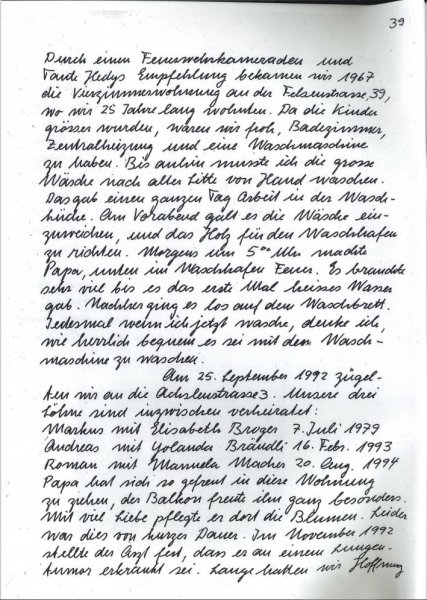 39
Durch einen Feuerwehrkameraden und
Tante Hedys Empfehlung bekamen wir 1967
die Vierzimmerwohnung an der Felsenstrasse, 39,
wo wir 25 Jahre lang wohnten. Da die Kinder
grösser wurden, waren wir froh, Badezimmer,
Zentralheizung und eine Waschmaschine
zu haben. Bis anhin musste ich die grosse
Wäsche nach alter Sitte von Hand waschen.
Das gab einen ganzen Tag Arbeit in der Wasch-
küche. Am Vorabend galt es die Wäsche ein-
zuweichen, und das Holz für den Waschhafen
zu richten. Morgens um 5⁰⁰ Uhr machte
Papa, unten im Waschhafen Feuer. Es brauchte
sehr viel bis es das erste Mal heisses Wasser
gab. Nachher ging es los auf dem Waschbrett.
Jedesmal wenn ich jetzt wasche, denke ich,
wie herrlich bequem es sei mit dem Wasch-
maschine zu waschen.
Am 25. September 1992 zügel-
ten wir an die Achslenstrasse 3. Unsere drei
Söhne sind inzwischen verheiratet:
Markus mit Elisabeth Broger 7. Juli 1979
Andreas mit Yolanda Brändli 16. Febr. 1993
Roman mit Manuela Macher 20. Aug. 1994
Papa hat sich so gefreut in diese Wohnung
zu ziehen, der Balkon freute ihn ganz besonders.
Mit viel Liebe pflegte er dort die Blumen. Leider
war dies von kurzer Dauer. Im November 1992
stellte der Arzt fest, dass er an einem Lungen-
tumor erkrankt sei. Lange hatten wir Hoffnung